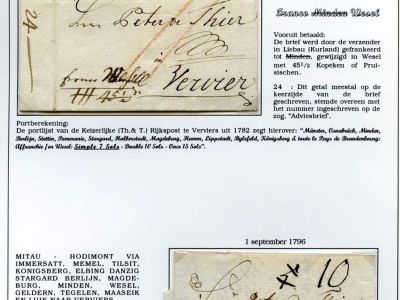 Franco Minden Wesel
Herr Peter de Thier
Vooruit betaald:
De brief werd door de verzender
in Liebau (Kurland) gefrankeerd
tot Minden, gewijzigd in Wesel
met 45½ Kopeken of Prui-
sischen.
24
franco Wesel
Vervier
45
24 : Dit getal meestal op de
keerzijde van de brief
geschreven, stemde overeem met
het nummer ingeschreven op de
zog. "Adviesbrief".
Portberekening:
De portlijst van de Keizerlijke (Th.& T.) Rijkspost te Verviers uit 1782 zegt hierover: "Münster, Osnabrück, Minden,
Berlijn, Stettin, Pomeranie, Stargard, Halberstadt, Magdeburg, Hamm, Lippstadt, Bylefeld, Königsberg & toute le Pays de Brandenbourg:
Affranchie jus Wesel: Simple 7 Sols - Double 10 Sols - Once 15 Sols".
1 september 1796
MITAU - HODIMONT VIA
IMMERSATT, MEMEL, TILSIT,
KONIGSBERG, ELBING DANZIG
STARGARD BERLIJN, MAGDE-
BURG, MINDEN, WESEL,
GELDERN, TEGELEN, MAASEIK
EN LUIK NAAR VERVIERS
10